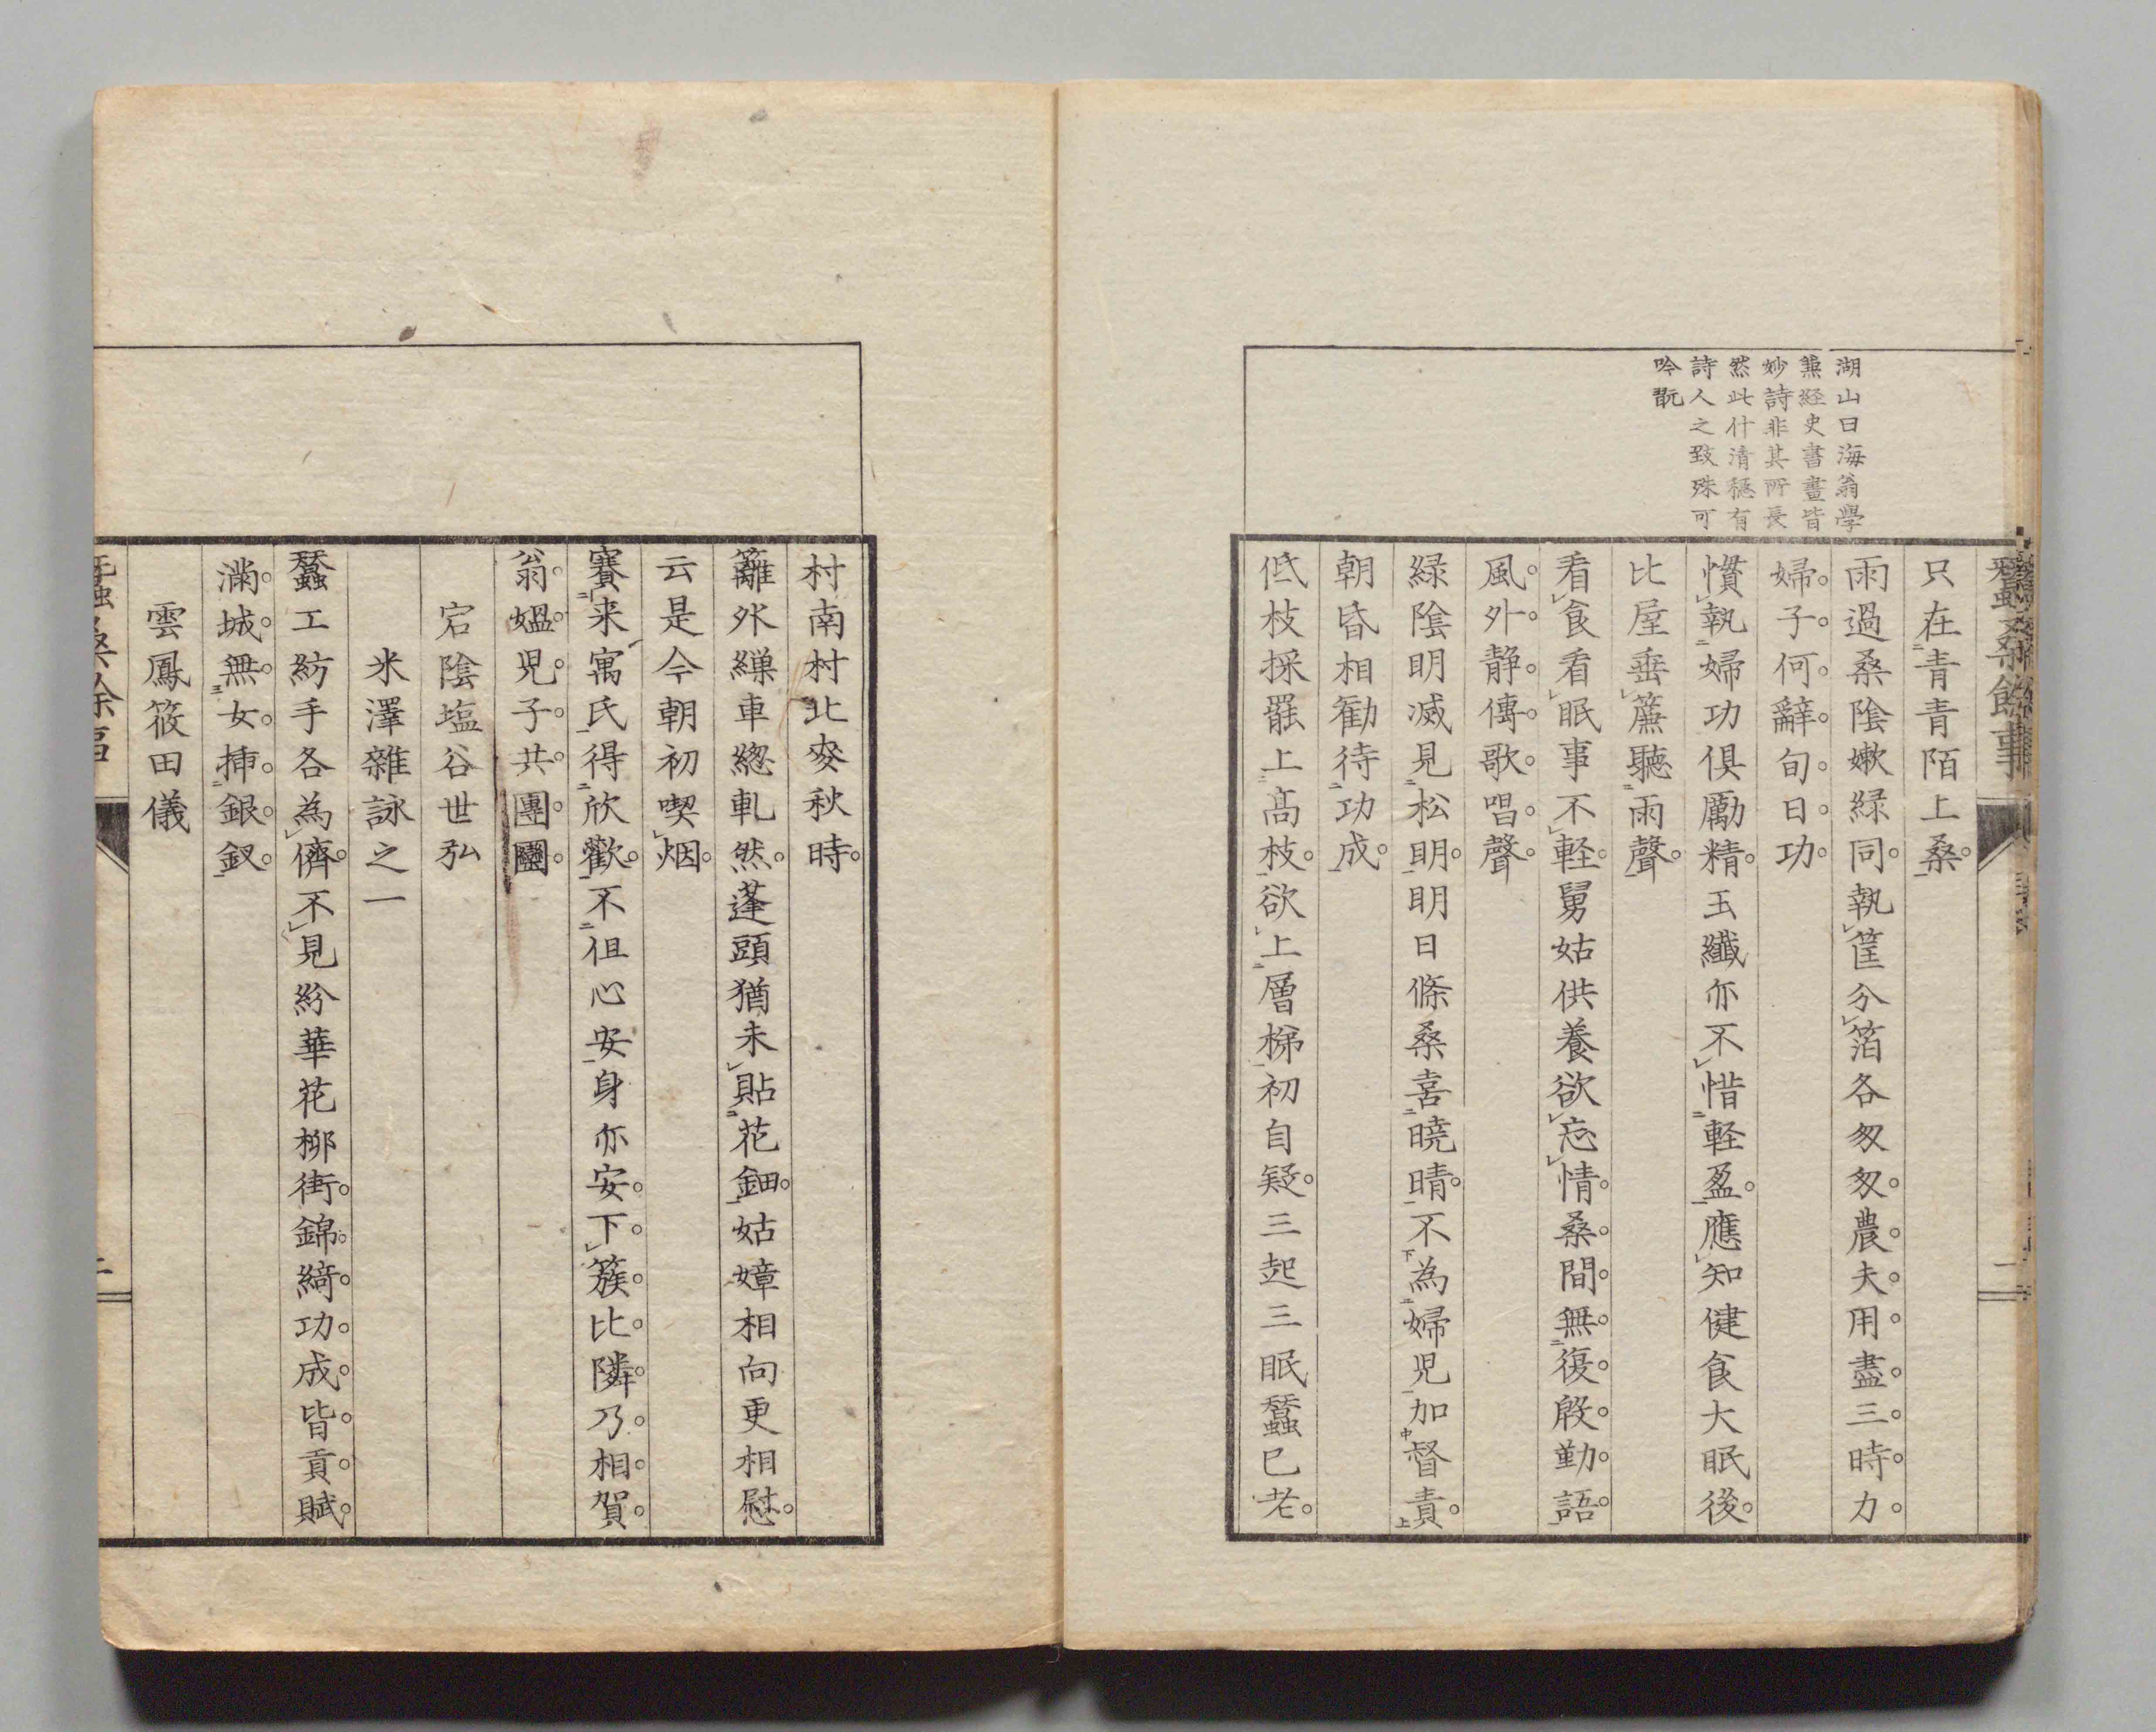 湖山曰海翁學
兼経史書畫皆
妙詩非其所長
然此什清穏有
詩人之致殊可
吟翫
蠶桑餘事
只在青青陌上桑
雨過桑陰嫰緑同執筐分箔各匆匆農夫用盡三時力
婦子何辭旬日功
慣執婦功倶勵精玉纖亦不惜軽盈應知健食大眠後
比屋垂簾聽雨聲
看食看眠事不軽舅姑供養欲忘情桑間無復殷勤語
風外静傳歌唱聲
緑陰明滅見松明明日條桑喜曉晴不為婦児加督責
朝昏相勸待功成
低枝採罷上高枝欲上層梯初自疑三起三眠蠶已老
村南村北麥秋時
籬外繅車緫軋然蓬頭猶未貼花鈿姑嫜相向更相慰
云是今朝初喫烟
賽来寓氏得欣歡不但心安身亦安下簇比隣乃相賀
翁媼児子共團圞
宕陰塩谷世弘
米澤雜詠之一
蠶工紡手各為儕不見紛華花柳街錦綺功成皆貢賦
滿城無女挿銀釵
雲鳳筱田儀